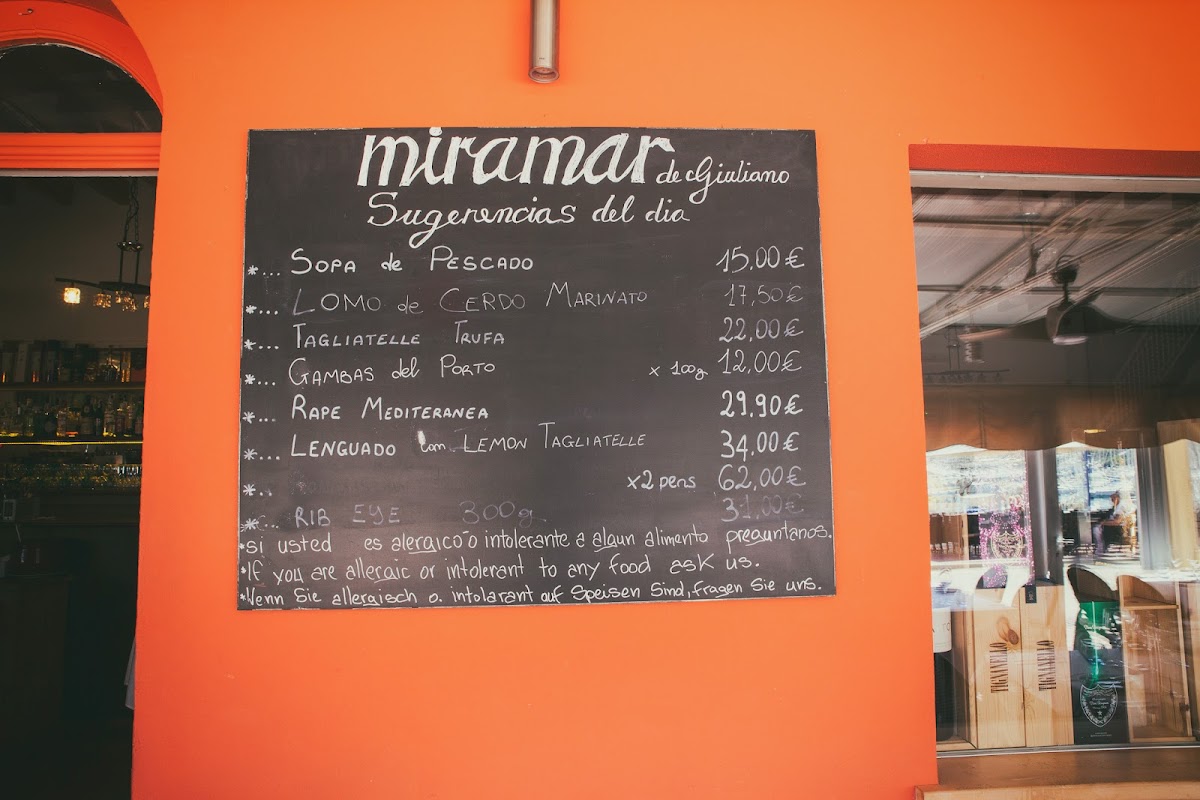 miramar de Giuliano
Sugerencias del dia
*... SOPA de PESCADO 15,00€
*... LOMO de CERDO MARINATO 17,50€
*... TAGLIATELLE TRUFA 22,00€
*... GAMBAS del PORTO x 100g 12,00€
*... RAPE MEDITERANEA 29,90€
*... LENGUADO con LEMON TAGLIATELLE 34,00€
*.. x2 pens 62,00€
*... RIB EYE 300g 31,00€
*si usted es aleraico o intolerante a algun alimento preguntanos.
*If you are alleraic or intolerant to any food ask us.
*Wenn Sie allergisch o. intolarant auf Speisen Sind, fragen Sie uns.
TIGNANELLO
TIGNANELLO